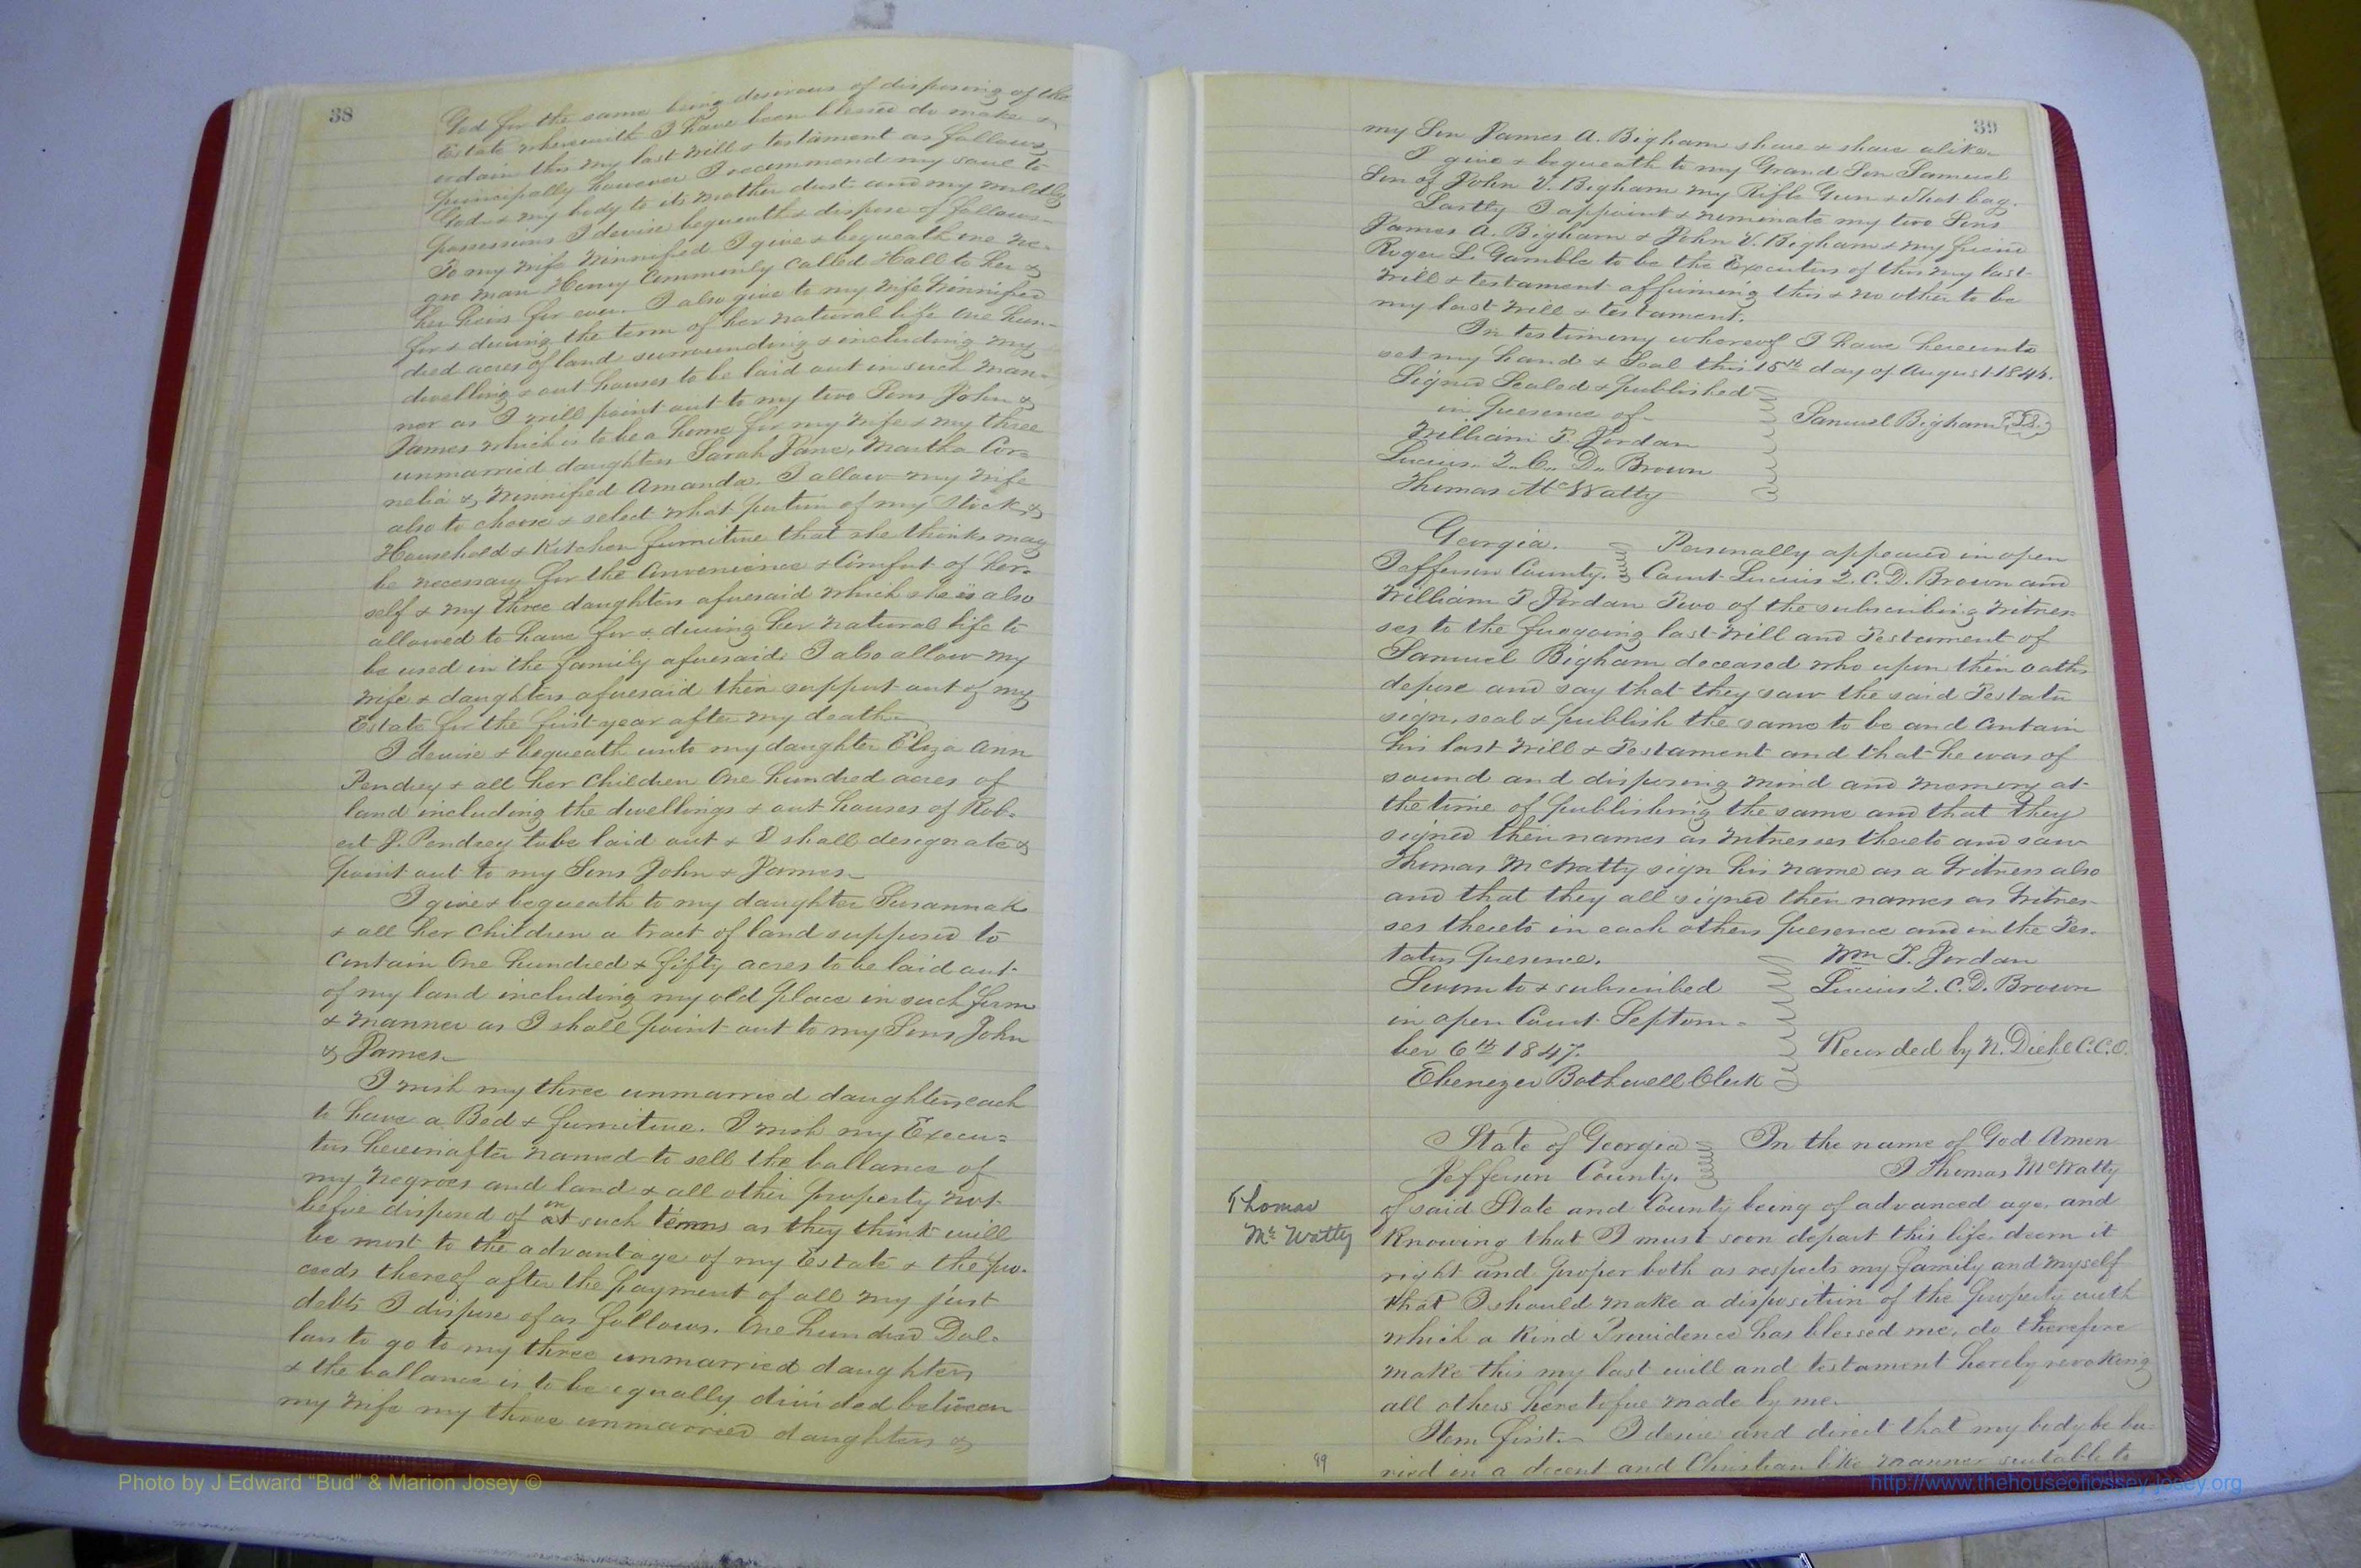 38
God for the same being desirous of disposing of the
Estate wherewith I have been blessed do make &
ordain this my last will & testament as follows
principally however I recommend my soul to
God & my body to its mother dust and my worldly
possessions I devise bequeath & dispose of follows-
To my wife Winnified I give & bequeath one ne-
gro man Henry Commonly called Hall to her &
her heirs for ever. I also give to my wife Winnified
for & during the term of her natural life One hun-
dred acres of land surrounding & including my
dwelling & out houses to be laid out in such man-
nor as I will point out to my two Sons John &
James which is to be a home for my wife & my three
unmarried daughters Sarah Jane, Martha Cor=
nelia & Winnified Amanda. I allow my wife
also to choose & select what portion of my stock &
Household & Kitchen furniture that she thinks may
be necessary for the Convenience & Comfort of her=
self & my three daughters aforesaid which she is also
allowed to have for & during her natural life to
be used in the family aforesaid. I also allow my
wife & daughters aforesaid their support out of my
Estate for the first year after my death.
I devise & bequeath unto my daughter Eliza Ann
Pendrey & all her Children One hundred acres of
land including the dwellings & out houses of Rob=
ert J. Pendrey to be laid out & I shall designate &
point out to my Sons John & James
I give & bequeath to my daughter Susannah
& all her Children a tract of land supposed to
Contain One hundred & fifty acres to be laid out
of my land including my old place in such form
& manner as I shall point out to my Sons John
& James
I wish my three unmarried daughters each
to have a Bed & furniture. I wish my Execu=
tors hereinafter named to sell the ballance of
my negroes and land & all other property not
before disposed of on at such terms as they think will
be most to the advantage of my Estate & the pro-
ceeds thereof after the payment of all my just
debts I dispose of as follows. One hundred Dol=
lars to go to my three unmarried daughters
& the ballance is to be equally divided between
my wife my three unmarried daughters &
39
my Son James A. Bigham share & share alike.
I give & bequeath to my Grand Son Samuel
Son of John V. Bigham my Rifle Gun & Shot bag.
Lastly I appoint & nominate my two Sons
James A. Bigham & John V. Bigham & my friend
Roger L. Gamble to be the Executors of this my last
will & testament affirming this & no other to be
my last will & testament.
In testimony whereof I have hereunto
set my hand & Seal this 15th day of August 1844.
Signed Sealed & published
in presence of
Samuel Bigham (L.S.)
William P. Jordan
Lucius Q. C. D. Brown
Thomas McWatty
Georgia. Personally appeared in open
Jefferson County. Court Lucius Q. C. D. Brown and
William P. Jordan Two of the subscribing witnes-
ses to the foregoing last will and Testament of
Samuel Bigham deceased who upon their oaths
depose and say that they saw the said Testator
sign, seal & publish the same to be and Contain
his last will & Testament and that he was of
sound and disposing mind and memory at
the time of publishing the same and that they
signed their names as witnesses thereto and saw
Thomas McWatty sign his name as a witness also
and that they all signed their names as witnes-
ses thereto in each others presence and in the Tes-
tators presence. Wm P. Jordan
Sworn to & subscribed Lucius Q. C. D. Brown
in open Court Septem-
ber 6th 1847. Recorded by N. Diehl C.C.O.
Ebenezer Bothwell Clerk
State of Georgia In the name of God Amen
Jefferson County. I Thomas McWatty
Thomas
Mc Watty
of said State and County being of advanced age, and
Knowing that I must soon depart this life deem it
right and proper both as respects my family and myself
that I should make a disposition of the property with
which a Kind Providence has blessed me, do therefore
make this my last will and testament hereby revoking
all others heretofore made by me.
Item first. I desire and direct that my body be bu-
ried in a decent and Christian like manner suitable to
99
Photo by J Edward "Bud" & Marion Josey ©
http://www.thehouseofjossey-josey.org